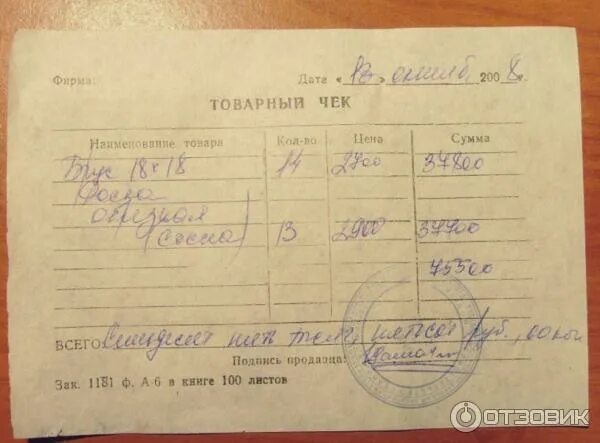 Фирма: Дата « 18 » октяб, 2008 г.
ТОВАРНЫЙ ЧЕК
Наименование товара Кол-во Цена Сумма
Брус 18х18 14 2700 37800
Доска
обрезная
(сосна) 13 2900 37700
75500
ВСЕГО Семьдесят пять тысяч, пятьсот руб, 00 коп
Подпись продавца:
Зак. 1181 ф. А-6 в книге 100 листов
ОТЗОВИК